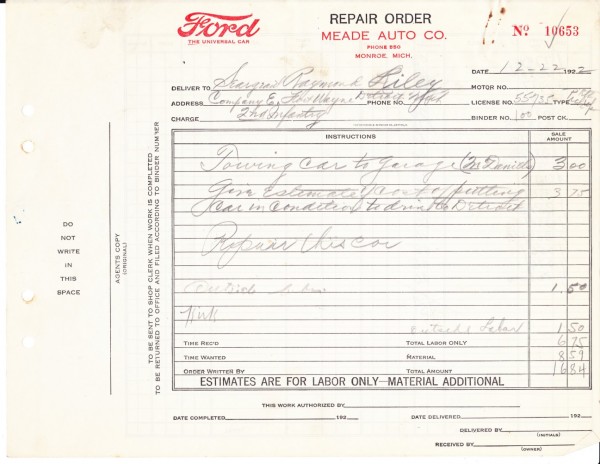 Ford
THE UNIVERSAL CAR
REPAIR ORDER
MEADE AUTO CO.
PHONE 550
MONROE, MICH.
No. 10653
DATE 12-22 1922
DELIVER TO Seargent Raymond Riley
MOTOR NO.
ADDRESS Company E, Fort Wayne Detroit Mich PHONE NO. LICENSE NO. TYPE
CHARGE 2nd Infantry BINDER NO. 100 POST CK.
INSTRUCTIONS SALE AMOUNT
Towing car to garage 3 00
Give Estimate / Cost of putting 3 75
car in condition to drive to Detroit
Repair this car
1.50
outside Labor 1 50
TIME REC'D TOTAL LABOR ONLY 6 75
TIME WANTED MATERIAL 8 59
ORDER WRITTEN BY TOTAL AMOUNT 16 84
ESTIMATES ARE FOR LABOR ONLY—MATERIAL ADDITIONAL
THIS WORK AUTHORIZED BY
DATE COMPLETED 192 DATE DELIVERED 192
DELIVERED BY
(INITIALS)
RECEIVED BY
(OWNER)
DO
NOT
WRITE
IN
THIS
SPACE
AGENTS COPY
(ORIGINAL)
TO BE SENT TO SHOP CLERK WHEN WORK IS COMPLETED
TO BE RETURNED TO OFFICE AND FILED ACCORDING TO BINDER NUMBER